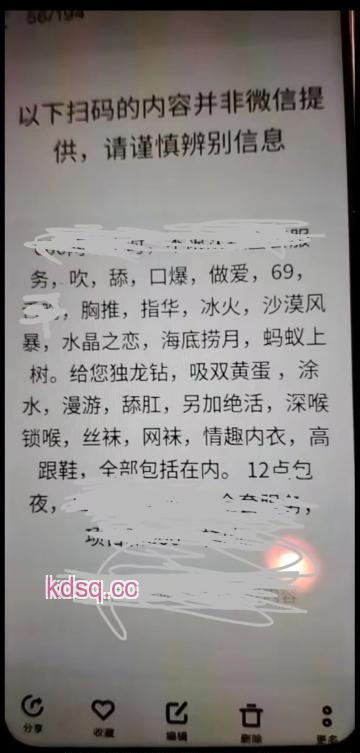 56/194
以下扫码的内容并非微信提
供，请谨慎辨别信息
服
务，吹，舔，口爆，做爱，69，
胸推，指华，冰火，沙漠风
暴，水晶之恋，海底捞月，蚂蚁上
树。给您独龙钻，吸双黄蛋，涂
水，漫游，舔肛，另加绝活，深喉
锁喉，丝袜，网袜，情趣内衣，高
跟鞋，全部包括在内。 12点包
夜，
kdsq.cc
分享
收藏
编辑
删除
更多